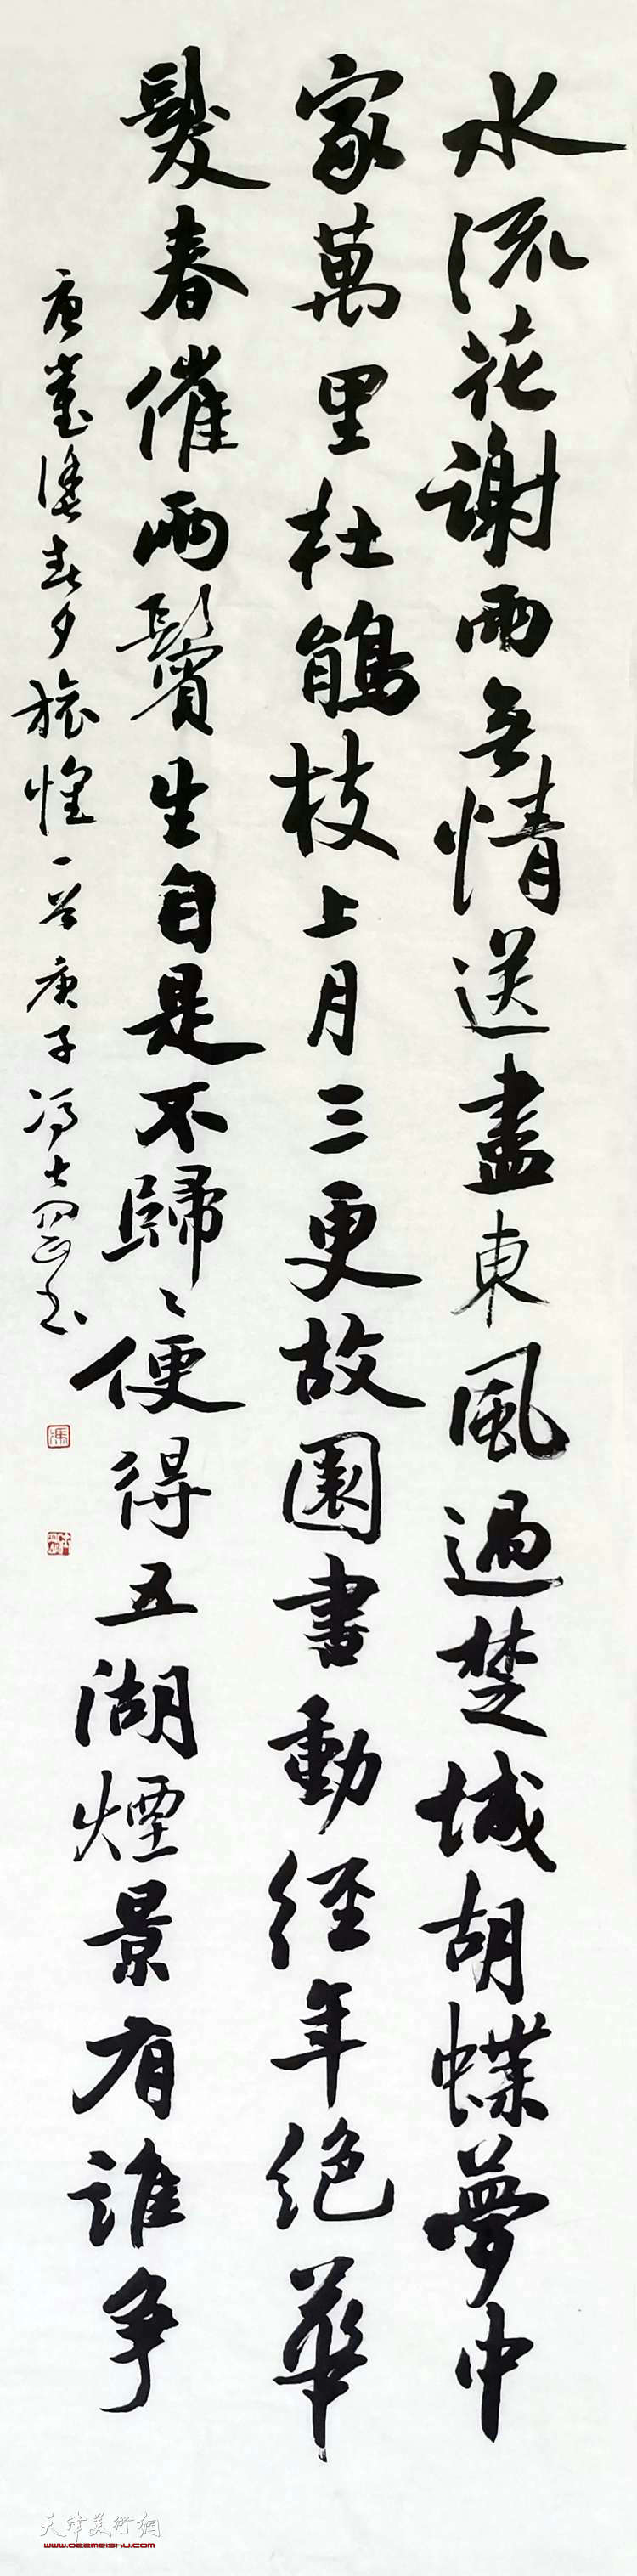 水流花謝兩無情送盡東風過楚城胡蝶夢中
家萬里杜鵑枝上月三更故園書動經年絕華
髮春催兩鬢生自是不歸〻便得五湖煙景有誰爭
唐崔塗春夕旅懷一首庚子馮士書
馮
天津美術網
www.022meishu.com